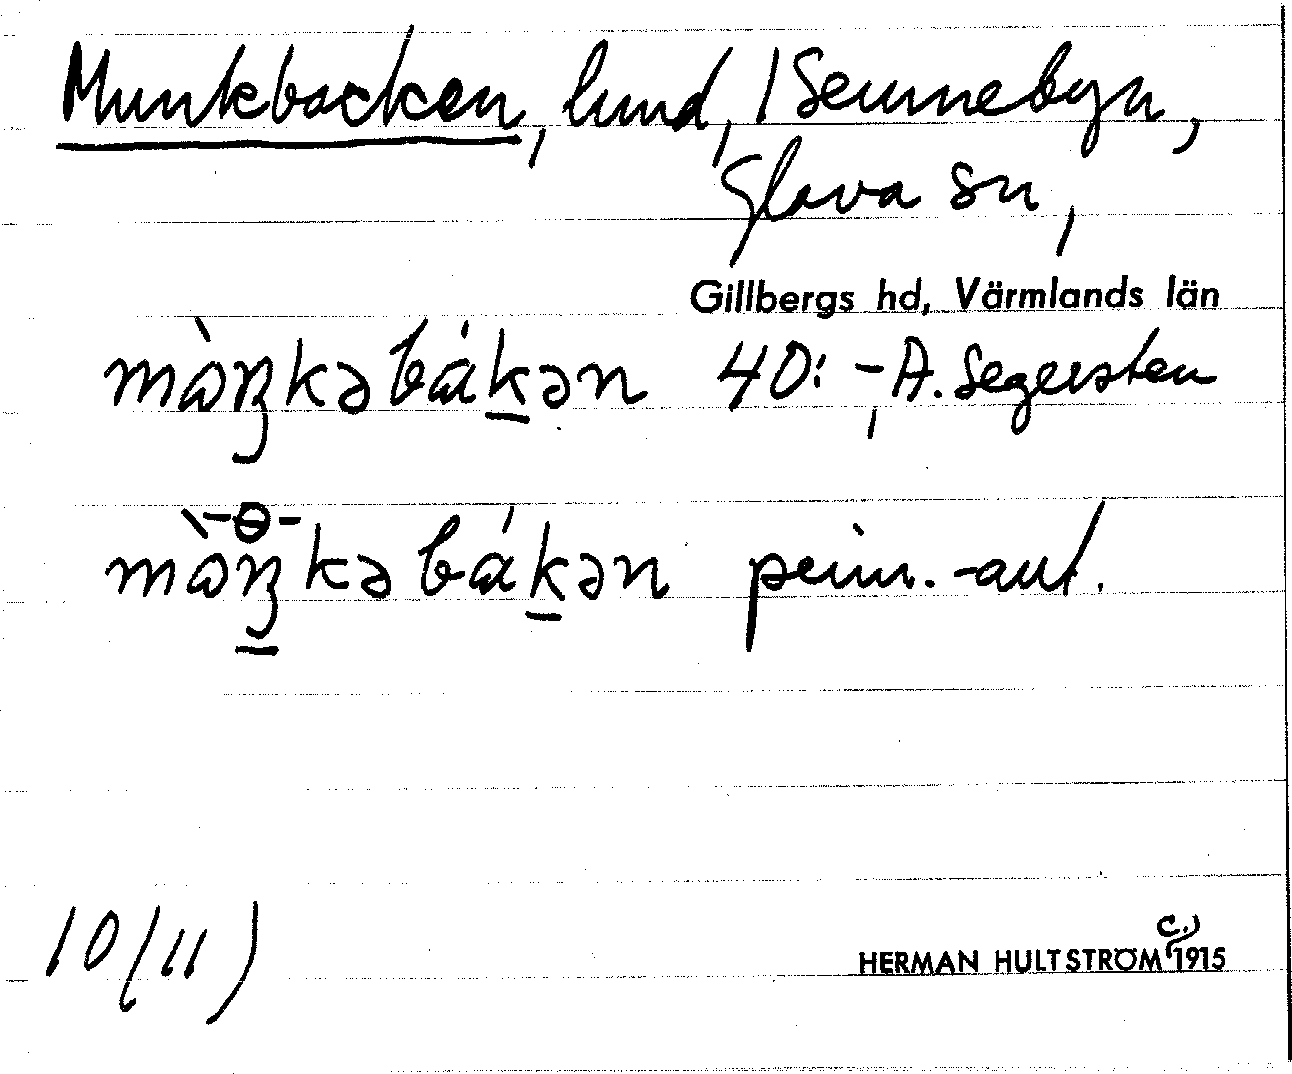 Munkbacken, lund, / Sennebyn,
Glava sn,
Gillbergs hd, Värmlands län
mə̀ŋkəbákən 40: -, A. Segersten
mə̀ŋkəbákən -ɵ-
10/11)
HERMAN HULTSTRÖM c.) 1915